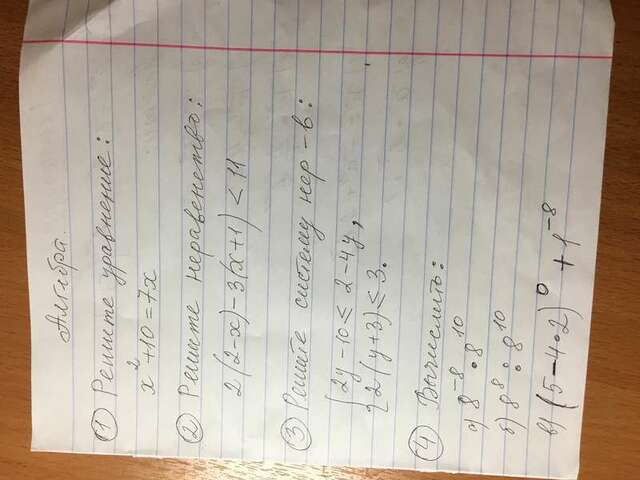 Алгебра.
① Решите уравнение:
x² + 10 = 7x
② Решите неравенство:
2(2-x) - 3(x+1) < 11
③ Решите систему нер-в:
{ 2y - 10 ≤ 2 - 4y,
{ 2(y+3) ≤ 3.
④ Вычислить:
а) 8⁻⁸ · 8¹⁰
б) 8⁸ : 8¹⁰
в) (5 - 4·2)⁰ + 1⁻⁸